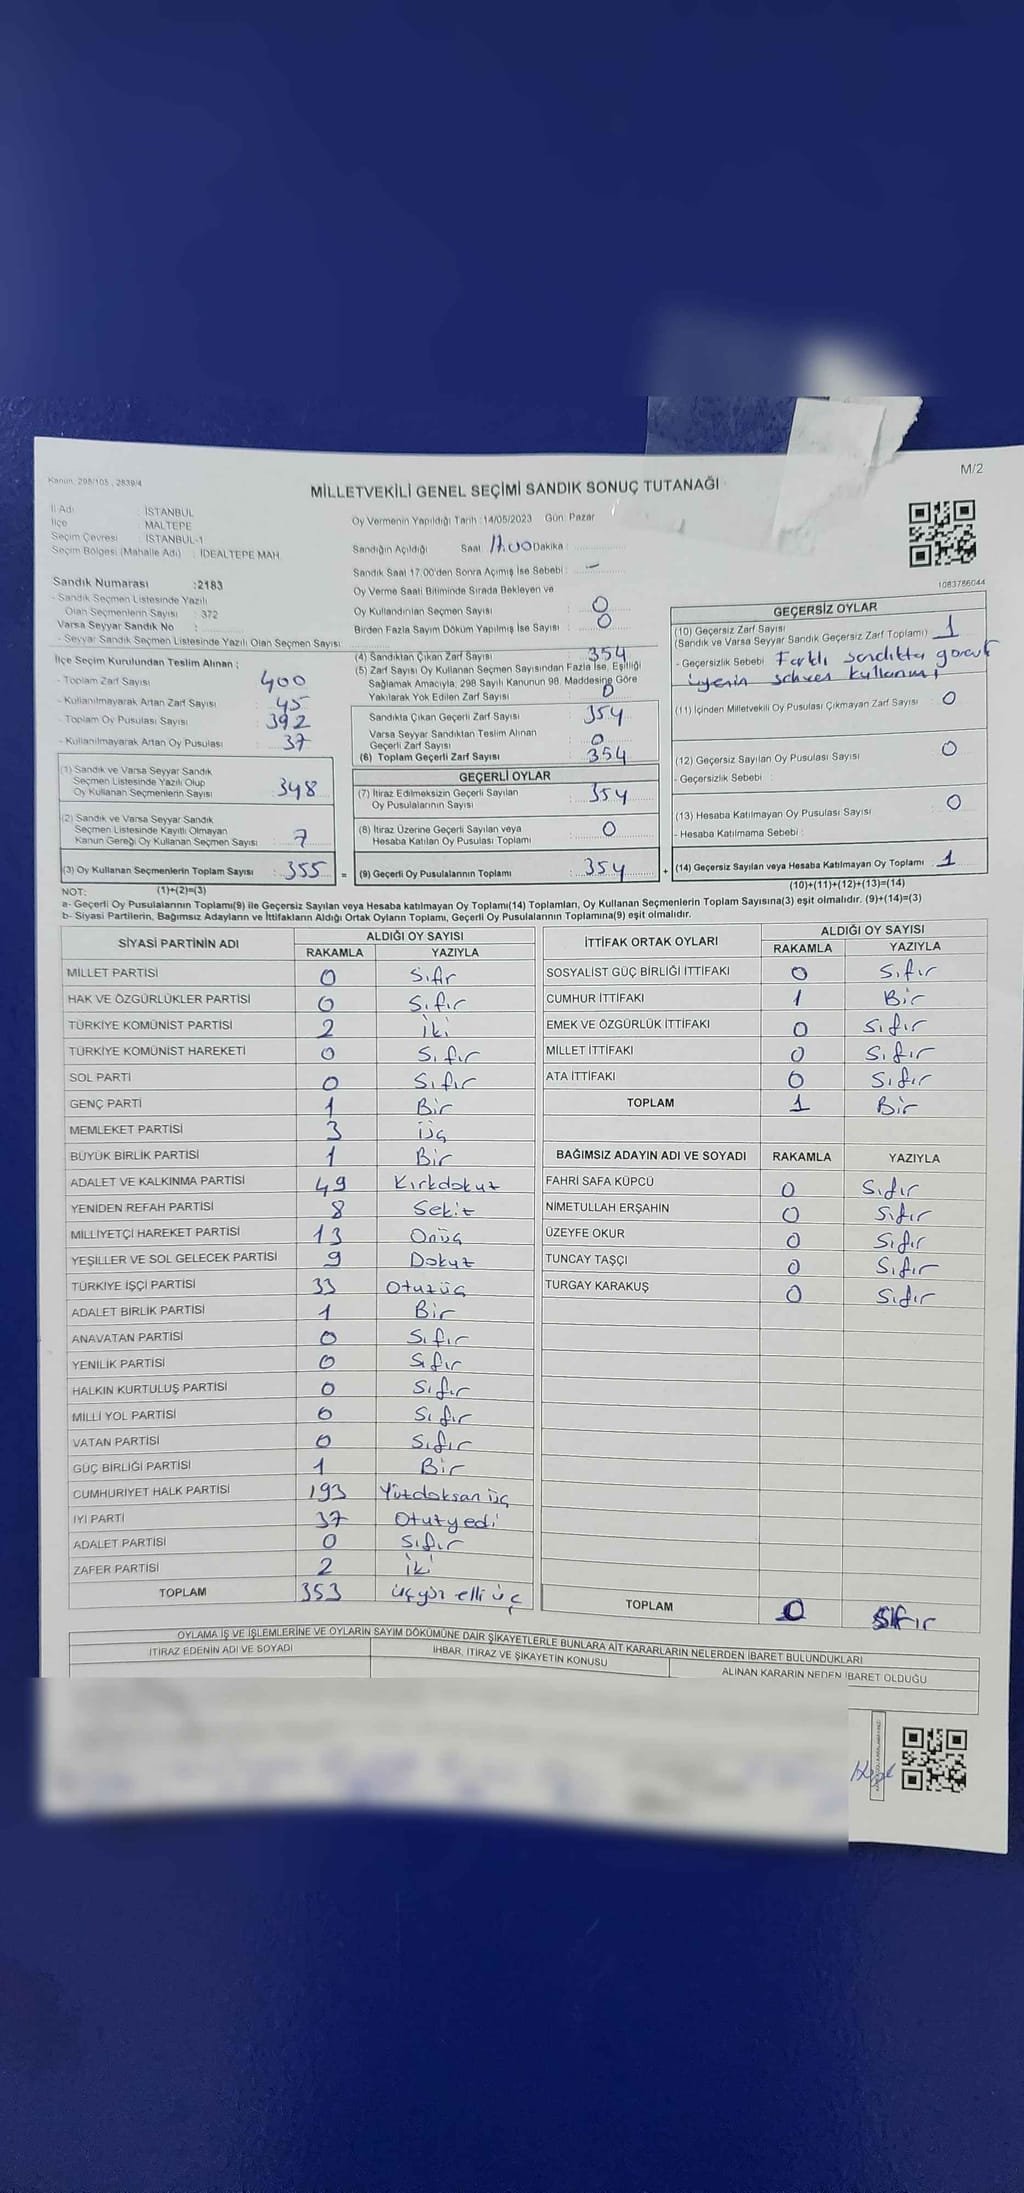 Kanun: 298/105 , 2839/4
M/2
MİLLETVEKİLİ GENEL SEÇİMİ SANDIK SONUÇ TUTANAĞI
İl Adı : İSTANBUL
İlçe : MALTEPE
Seçim Çevresi : İSTANBUL-1
Seçim Bölgesi (Mahalle Adı) : İDEALTEPE MAH.
Sandık Numarası :2183
- Sandık Seçmen Listesinde Yazılı
Olan Seçmenlerin Sayısı : 372
Varsa Seyyar Sandık No :
- Seyyar Sandık Seçmen Listesinde Yazılı Olan Seçmen Sayısı:
Oy Vermenin Yapıldığı Tarih :14/05/2023 Gün: Pazar
Sandığın Açıldığı Saat: 17.00 Dakika :
Sandık Saat 17.00'den Sonra Açımış İse Sebebi : -
Oy Verme Saati Bitiminde Sırada Bekleyen ve
Oy Kullandırılan Seçmen Sayısı : 0
Birden Fazla Sayım Döküm Yapılmış İse Sayısı : 0
1083786044
İlçe Seçim Kurulundan Teslim Alınan ;
- Toplam Zarf Sayısı : 400
- Kullanılmayarak Artan Zarf Sayısı : 45
- Toplam Oy Pusulası Sayısı : 392
- Kullanılmayarak Artan Oy Pusulası : 37
(1) Sandık ve Varsa Seyyar Sandık
Seçmen Listesinde Yazılı Olup
Oy Kullanan Seçmenlerin Sayısı : 348
(2) Sandık ve Varsa Seyyar Sandık
Seçmen Listesinde Kayıtlı Olmayan
Kanun Gereği Oy Kullanan Seçmen Sayısı : 7
(3) Oy Kullanan Seçmenlerin Toplam Sayısı : 355 =
(4) Sandıktan Çıkan Zarf Sayısı : 354
(5) Zarf Sayısı Oy Kullanan Seçmen Sayısından Fazla İse, Eşitliği
Sağlamak Amacıyla, 298 Sayılı Kanunun 98. Maddesine Göre
Yakılarak Yok Edilen Zarf Sayısı : 0
Sandıkta Çıkan Geçerli Zarf Sayısı : 354
Varsa Seyyar Sandıktan Teslim Alınan
Geçerli Zarf Sayısı : 0
(6) Toplam Geçerli Zarf Sayısı : 354
GEÇERLİ OYLAR
(7) İtiraz Edilmeksizin Geçerli Sayılan
Oy Pusulalarının Sayısı : 354
(8) İtiraz Üzerine Geçerli Sayılan veya
Hesaba Katılan Oy Pusulası Toplamı : 0
(9) Geçerli Oy Pusulalarının Toplamı : 354 +
GEÇERSİZ OYLAR
(10) Geçersiz Zarf Sayısı
(Sandık ve Varsa Seyyar Sandık Geçersiz Zarf Toplamı) 1
- Geçersizlik Sebebi : Farklı sandıkta görevli
üyenin sehven kullanımı
(11) İçinden Milletvekili Oy Pusulası Çıkmayan Zarf Sayısı : 0
(12) Geçersiz Sayılan Oy Pusulası Sayısı : 0
- Geçersizlik Sebebi :
(13) Hesaba Katılmayan Oy Pusulası Sayısı : 0
- Hesaba Katılmama Sebebi :
(14) Geçersiz Sayılan veya Hesaba Katılmayan Oy Toplamı : 1
NOT: (1)+(2)=(3)
(10)+(11)+(12)+(13)=(14)
a- Geçerli Oy Pusulalarının Toplamı(9) ile Geçersiz Sayılan veya Hesaba katılmayan Oy Toplamı(14) Toplamları, Oy Kullanan Seçmenlerin Toplam Sayısına(3) eşit olmalıdır. (9)+(14)=(3)
b- Siyasi Partilerin, Bağımsız Adayların ve İttifakların Aldığı Ortak Oyların Toplamı, Geçerli Oy Pusulalarının Toplamına(9) eşit olmalıdır.
SİYASİ PARTİNİN ADI ALDIĞI OY SAYISI
RAKAMLA YAZIYLA
MİLLET PARTİSİ 0 Sıfır
HAK VE ÖZGÜRLÜKLER PARTİSİ 0 Sıfır
TÜRKİYE KOMÜNİST PARTİSİ 2 iki
TÜRKİYE KOMÜNİST HAREKETİ 0 Sıfır
SOL PARTİ 0 Sıfır
GENÇ PARTİ 1 Bir
MEMLEKET PARTİSİ 3 üç
BÜYÜK BİRLİK PARTİSİ 1 Bir
ADALET VE KALKINMA PARTİSİ 49 Kırkdokuz
YENİDEN REFAH PARTİSİ 8 Sekiz
MİLLİYETÇİ HAREKET PARTİSİ 13 Onüç
YEŞİLLER VE SOL GELECEK PARTİSİ 9 Dokuz
TÜRKİYE İŞÇİ PARTİSİ 33 Otuzüç
ADALET BİRLİK PARTİSİ 1 Bir
ANAVATAN PARTİSİ 0 Sıfır
YENİLİK PARTİSİ 0 Sıfır
HALKIN KURTULUŞ PARTİSİ 0 Sıfır
MİLLİ YOL PARTİSİ 0 Sıfır
VATAN PARTİSİ 0 Sıfır
GÜÇ BİRLİĞİ PARTİSİ 1 Bir
CUMHURİYET HALK PARTİSİ 193 Yüzdoksan üç
İYİ PARTİ 37 Otuzyedi
ADALET PARTİSİ 0 Sıfır
ZAFER PARTİSİ 2 iki
TOPLAM 353 üçyüz elli üç
İTTİFAK ORTAK OYLARI ALDIĞI OY SAYISI
RAKAMLA YAZIYLA
SOSYALİST GÜÇ BİRLİĞİ İTTİFAKI 0 Sıfır
CUMHUR İTTİFAKI 1 Bir
EMEK VE ÖZGÜRLÜK İTTİFAKI 0 Sıfır
MİLLET İTTİFAKI 0 Sıfır
ATA İTTİFAKI 0 Sıfır
TOPLAM 1 Bir
BAĞIMSIZ ADAYIN ADI VE SOYADI RAKAMLA YAZIYLA
FAHRİ SAFA KÜPCÜ 0 Sıfır
NİMETULLAH ERŞAHİN 0 Sıfır
ÜZEYFE OKUR 0 Sıfır
TUNCAY TAŞÇI 0 Sıfır
TURGAY KARAKUŞ 0 Sıfır
TOPLAM 0 Sıfır
OYLAMA İŞ VE İŞLEMLERİNE VE OYLARIN SAYIM DÖKÜMÜNE DAİR ŞİKAYETLERLE BUNLARA AİT KARARLARIN NELERDEN İBARET BULUNDUKLARI
İTİRAZ EDENİN ADI VE SOYADI İHBAR, İTİRAZ VE ŞİKAYETİN KONUSU ALINAN KARARIN NEDEN İBARET OLDUĞU